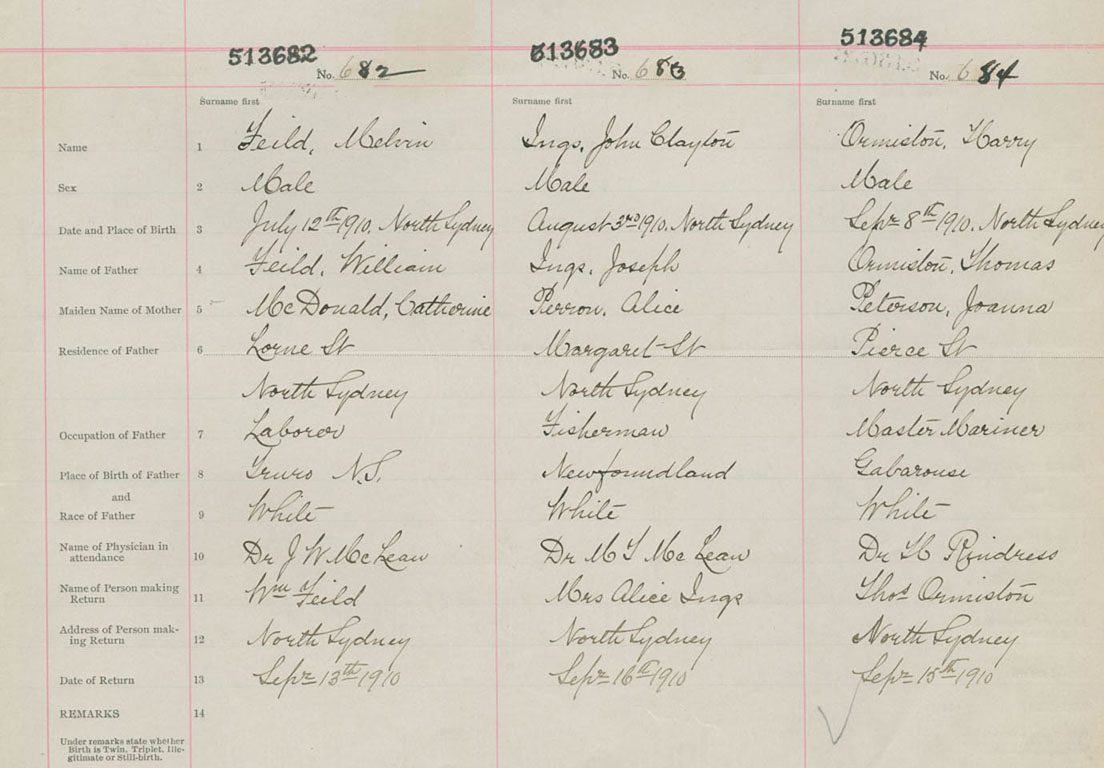 513682 513683 513684
No. 682 No. 683 No. 684
Surname first Surname first Surname first
Name 1 Feild, Melvin Ings, John Clayton Ormiston, Harry
Sex 2 Male Male Male
Date and Place of Birth 3 July 12th 1910, North Sydney August 3rd 1910, North Sydney Sepr 8th 1910, North Sydney
Name of Father 4 Feild, William Ings, Joseph Ormiston, Thomas
Maiden Name of Mother 5 McDonald, Catherine Perron, Alice Peterson, Joanna
Residence of Father 6 Lorne St Margaret St Pierce St
North Sydney North Sydney North Sydney
Occupation of Father 7 Laborer Fisherman Master Mariner
Place of Birth of Father 8 Truro N.S. Newfoundland Gabarouse
and
Race of Father 9 White White White
Name of Physician in
attendance 10 Dr J W McLean Dr M T McLean Dr H Rindress
Name of Person making
Return 11 Wm Feild Mrs Alice Ings Thos Ormiston
Address of Person mak-
ing Return 12 North Sydney North Sydney North Sydney
Date of Return 13 Sepr 13th 1910 Sepr 16th 1910 Sepr 15th 1910
REMARKS 14
Under remarks state whether
Birth is Twin, Triplet, Ille-
gitimate or Still-birth.